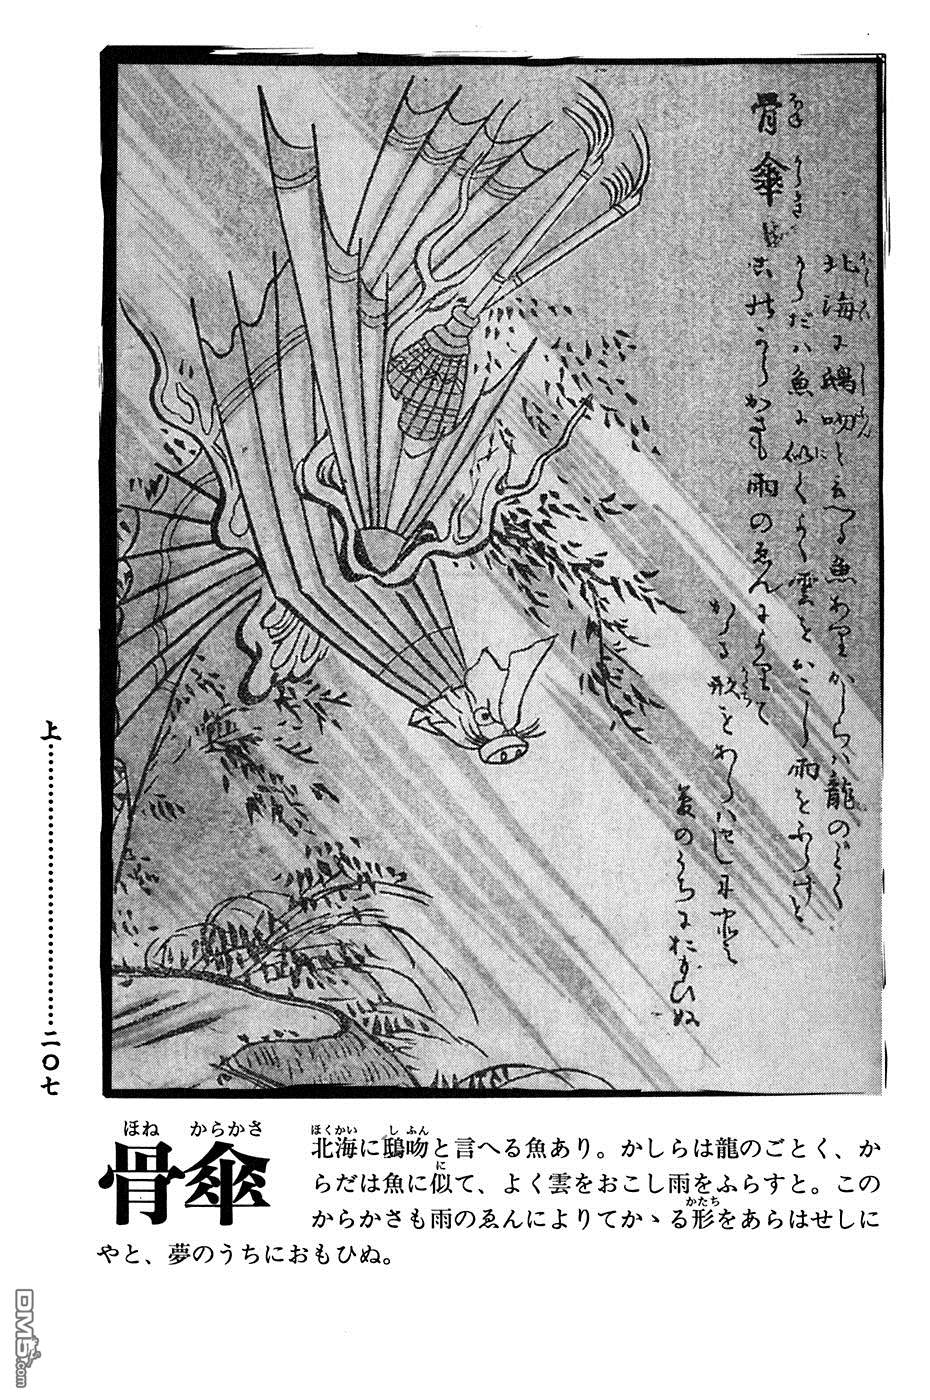 骨傘
ほね
からかさ
北海に鴟吻と云へる魚あり かしらは龍のごとく
ほくかい
しふん
からだハ魚に似てよく雲をおこし雨をふらすと
に
このからかさも雨のゑんによりて
かゝる形をあらハせしにやと
かたち
夢のうちにおもひぬ
上……………………二〇七
ほね からかさ
骨傘
ほくかい しふん
北海に鴟吻と言へる魚あり。かしらは龍のごとく、か
に
らだは魚に似て、よく雲をおこし雨をふらすと。この
かたち
からかさも雨のゑんによりてかゝる形をあらはせしに
やと、夢のうちにおもひぬ。
DM5.com